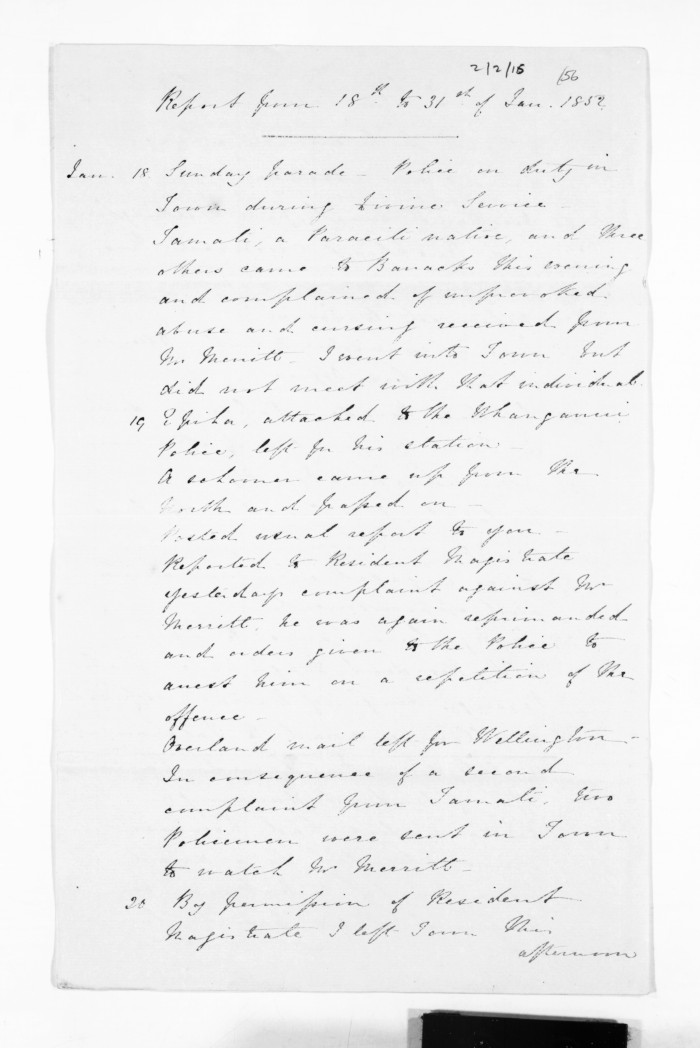 2/2/15
156
Report from 18th to 31st of Jan. 1852
Jan. 18 Sunday parade - Police on duty in
Town during Divine Service -
Tamati, a native, and three
others came to Barracks this evening
and complained of unprovoked
abuse and cursing received from
Mr Merritt - I went into Town but
did not meet with that individual.
19 Epiha, attached to the Whanganui
Police, left for his station -
A schooner came up from the
North and passed on -
Posted usual report to you -
Reported to Resident Magistrate
yesterdays complaint against Mr
Merritt, he was again reprimanded
and orders given to the Police to
arrest him on a repetition of the
offence -
Overland mail left for Wellington -
In consequence of a second
complaint from Tamati, two
Policemen were sent in Town
to watch Mr Merritt -
20 By permission of Resident
Magistrate I left Town this
afternoon